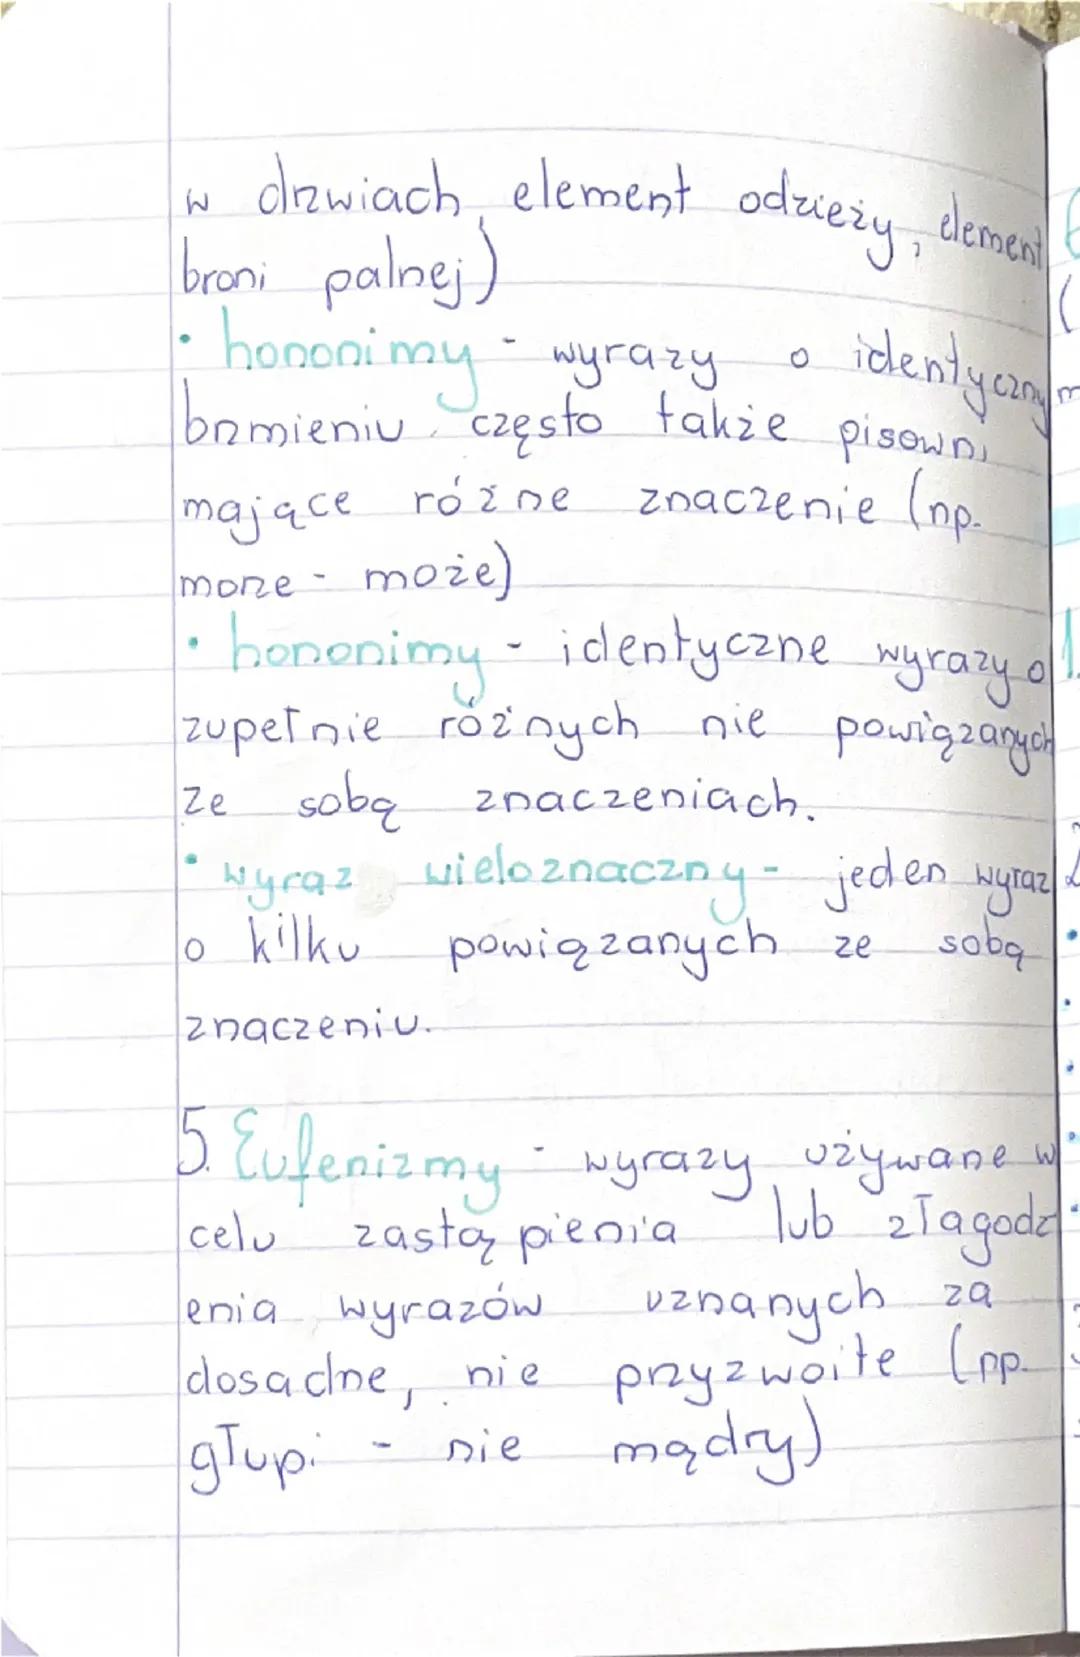 w drzwiach, element odzieży, element
broni palnej)
• hononimy - wyrazy o identyczny
brzmieniu często także pisowni
mające różne znaczenie (np.
morze - może)
• hononimy - identyczne wyrazy o
zupełnie różnych nie powiązanych
ze sobą znaczeniach.
• wyraz wieloznaczny - jeden wyraz
o kilku powiązanych ze sobą
znaczeniu.
5. Eufenizmy - wyrazy używane w
celu zastąpienia lub złagodz
enia wyrazów uznanych za
dosadne, nie przyzwoite (np.
głupi - nie mądry)